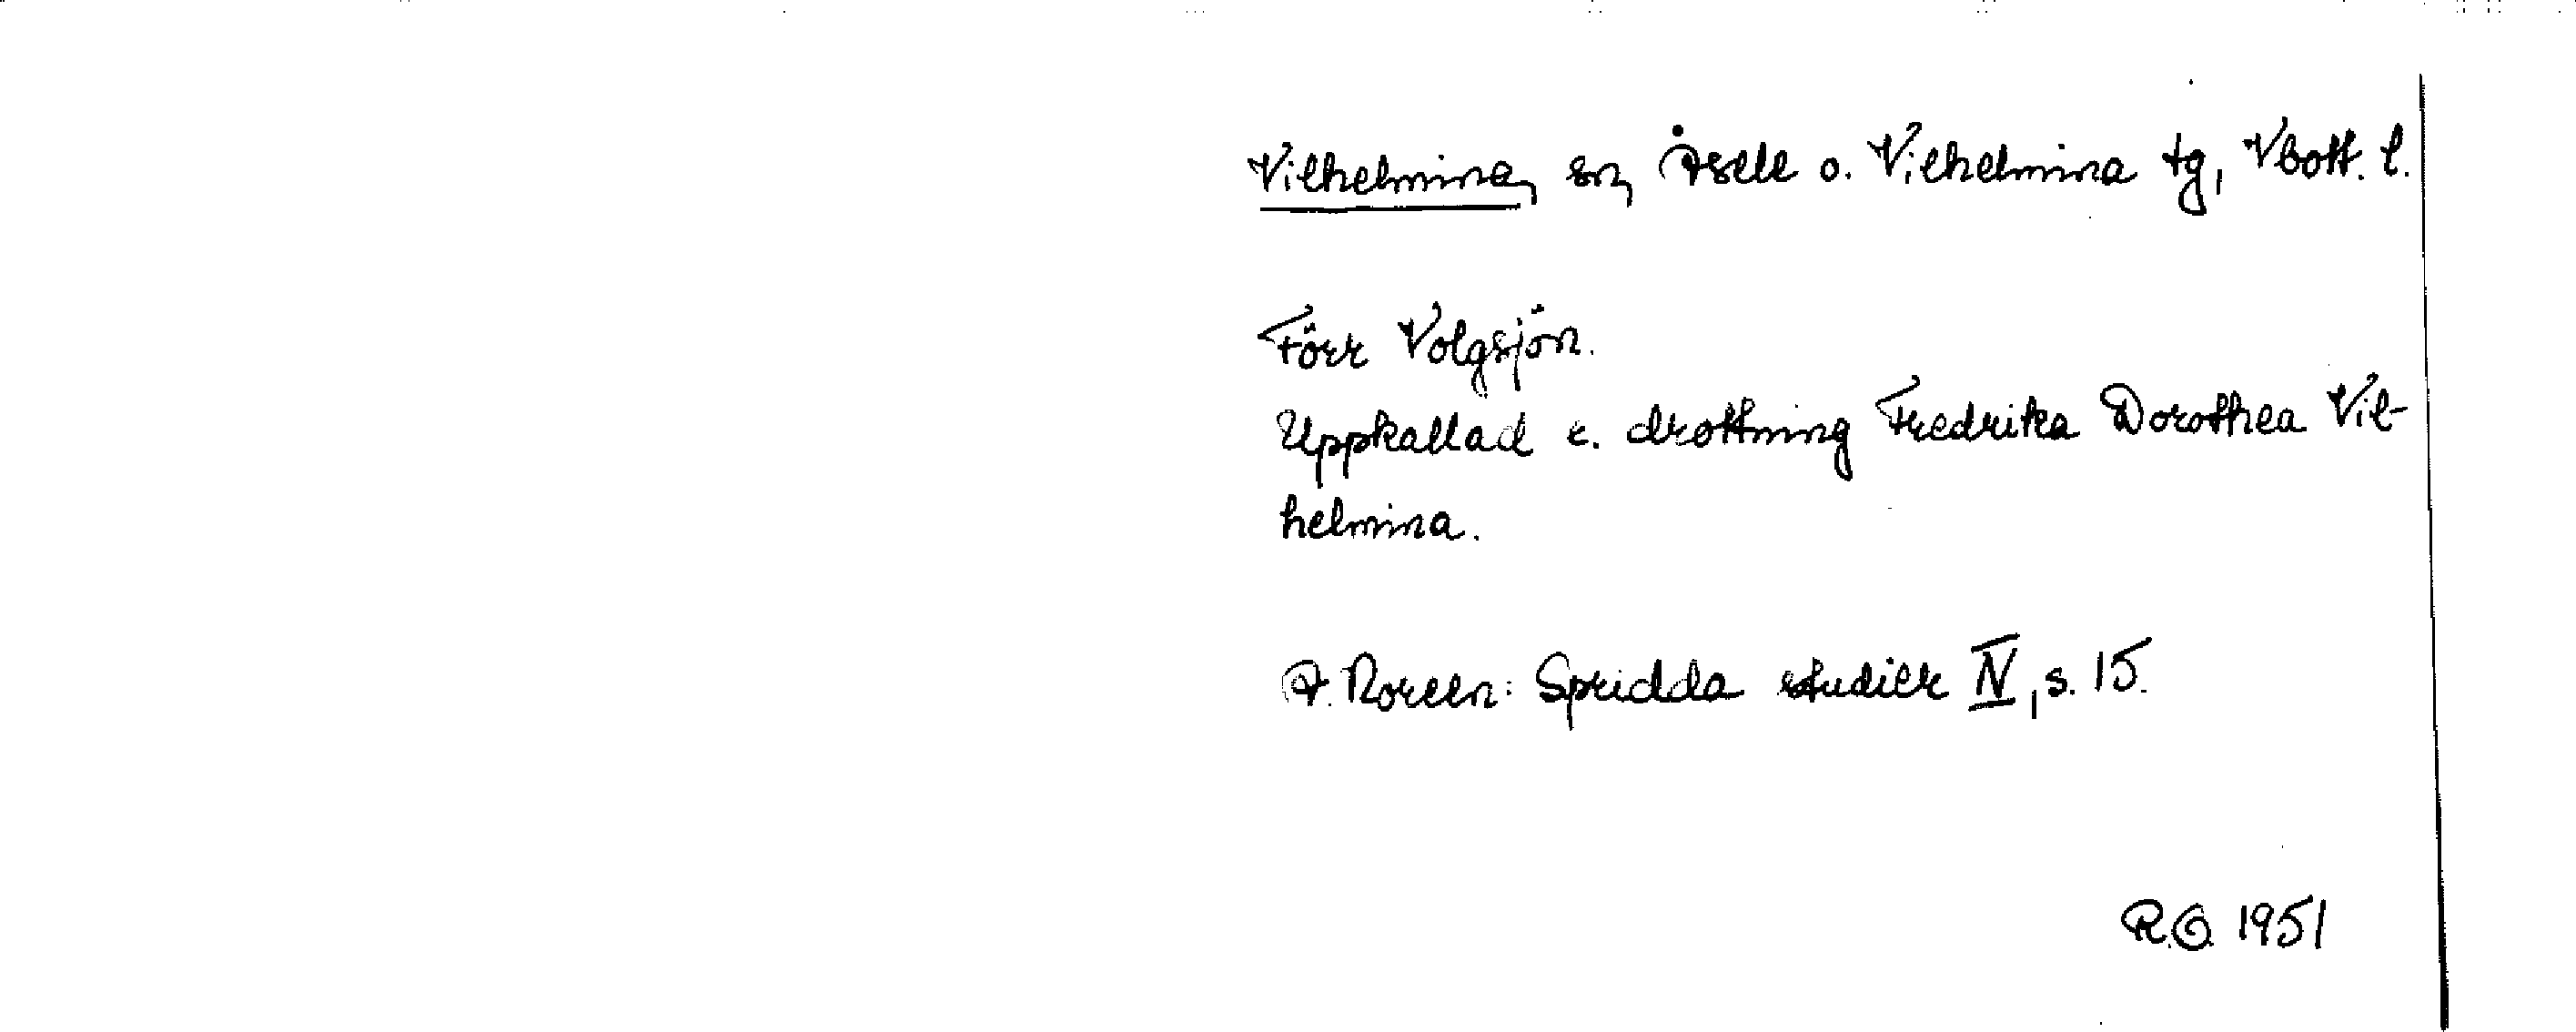 Vilhelmina, sn, Åsele o. Vilhelmina tg, Vbott. l.
Förr Volgsjön.
Uppkallad e. drottning Fredrika Dorothea Vil-
helmina.
A. Noreen: Spridda studier IV, s. 15.
R.O. 1951